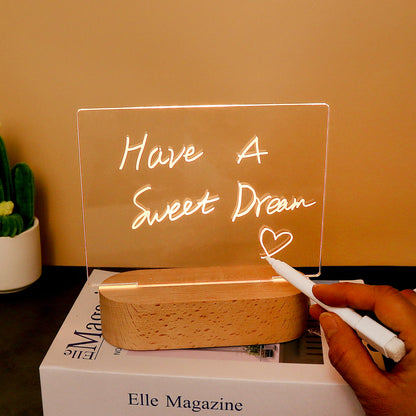 Have A
Sweet Dream
Elle Magaz
Elle Magazine